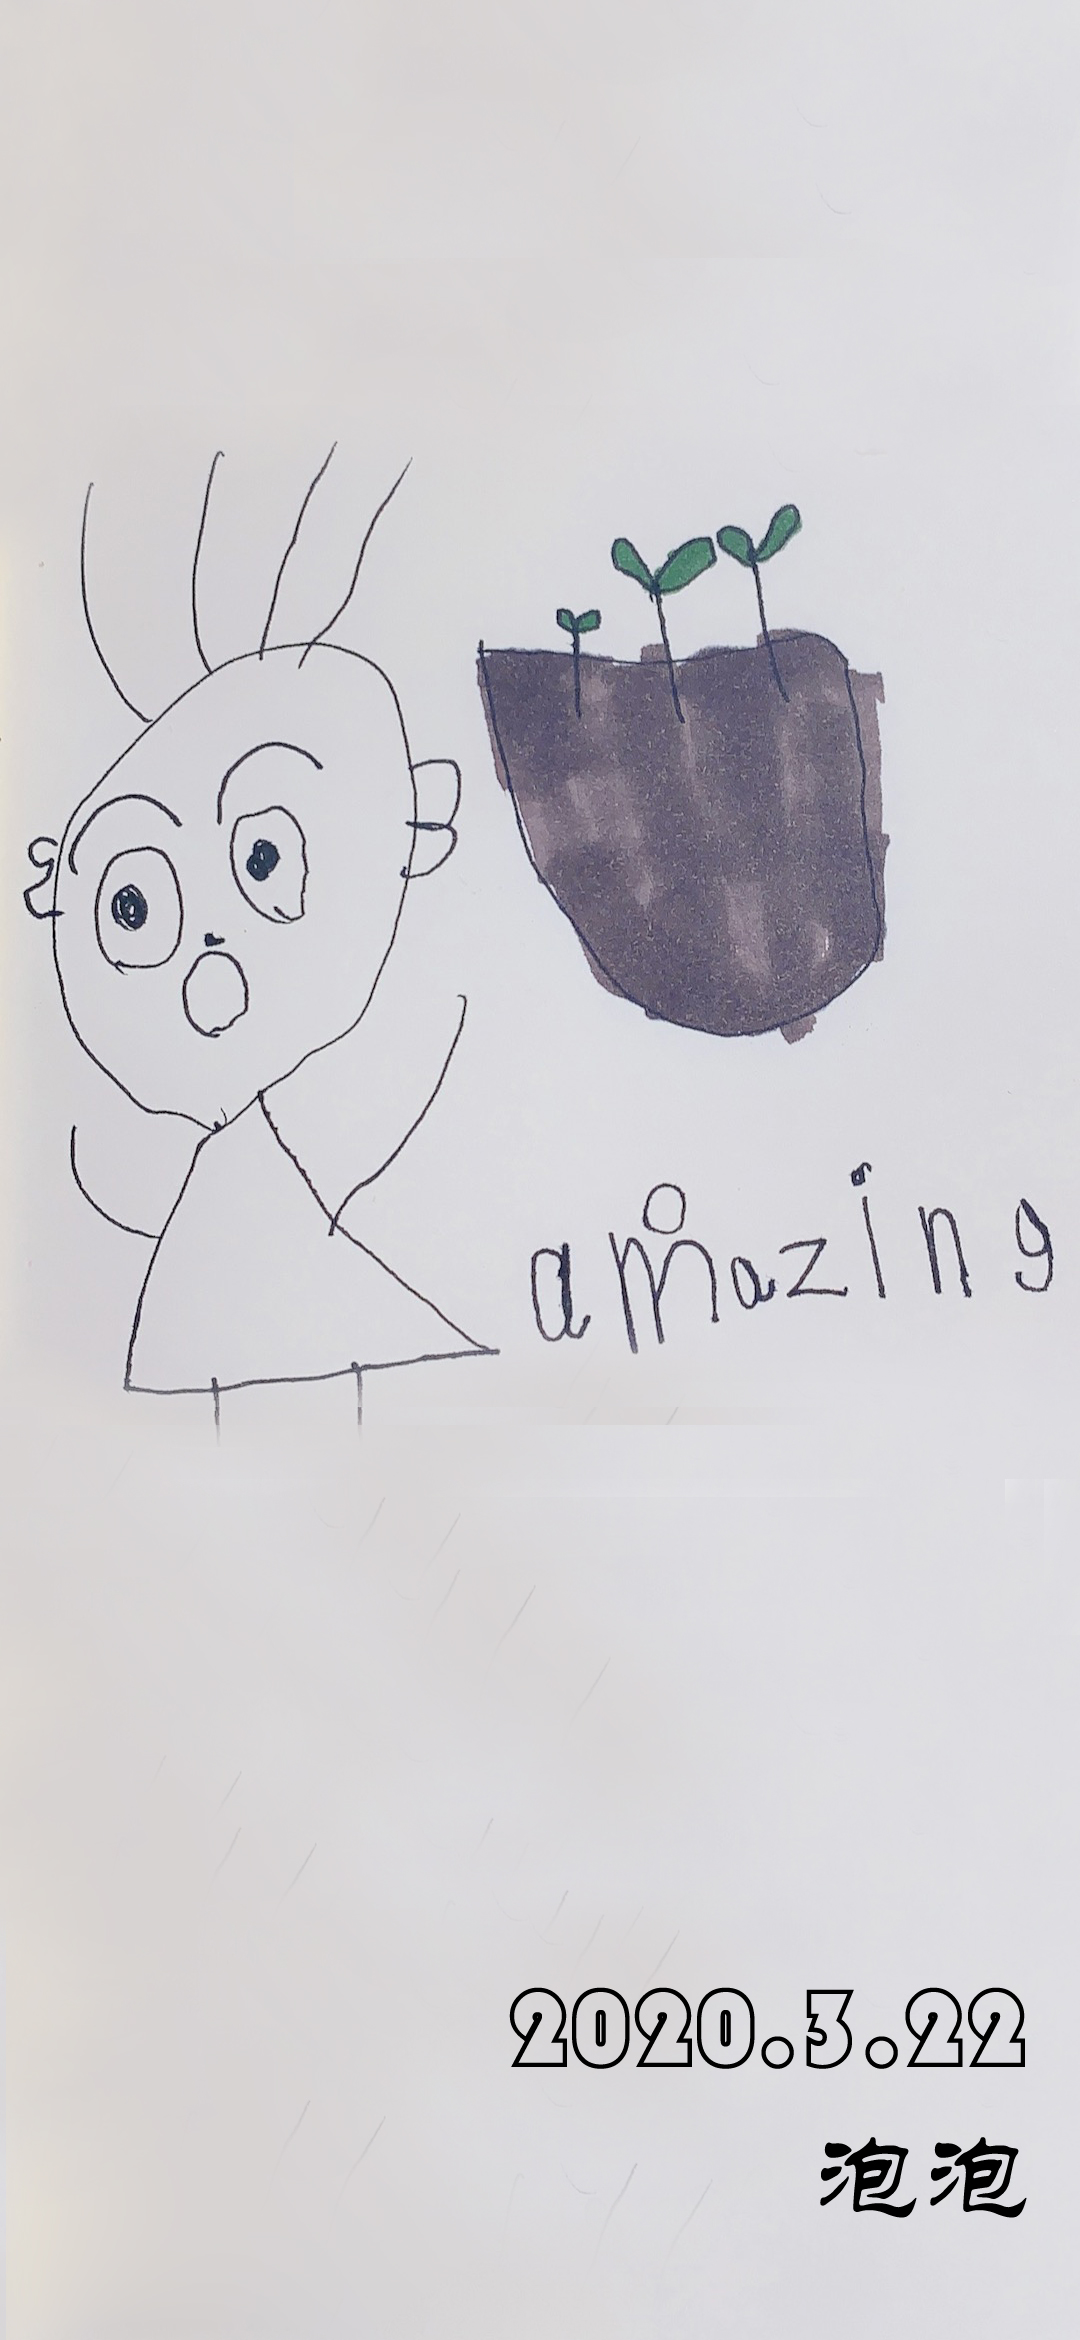 amazing
2020.3.22
泡泡